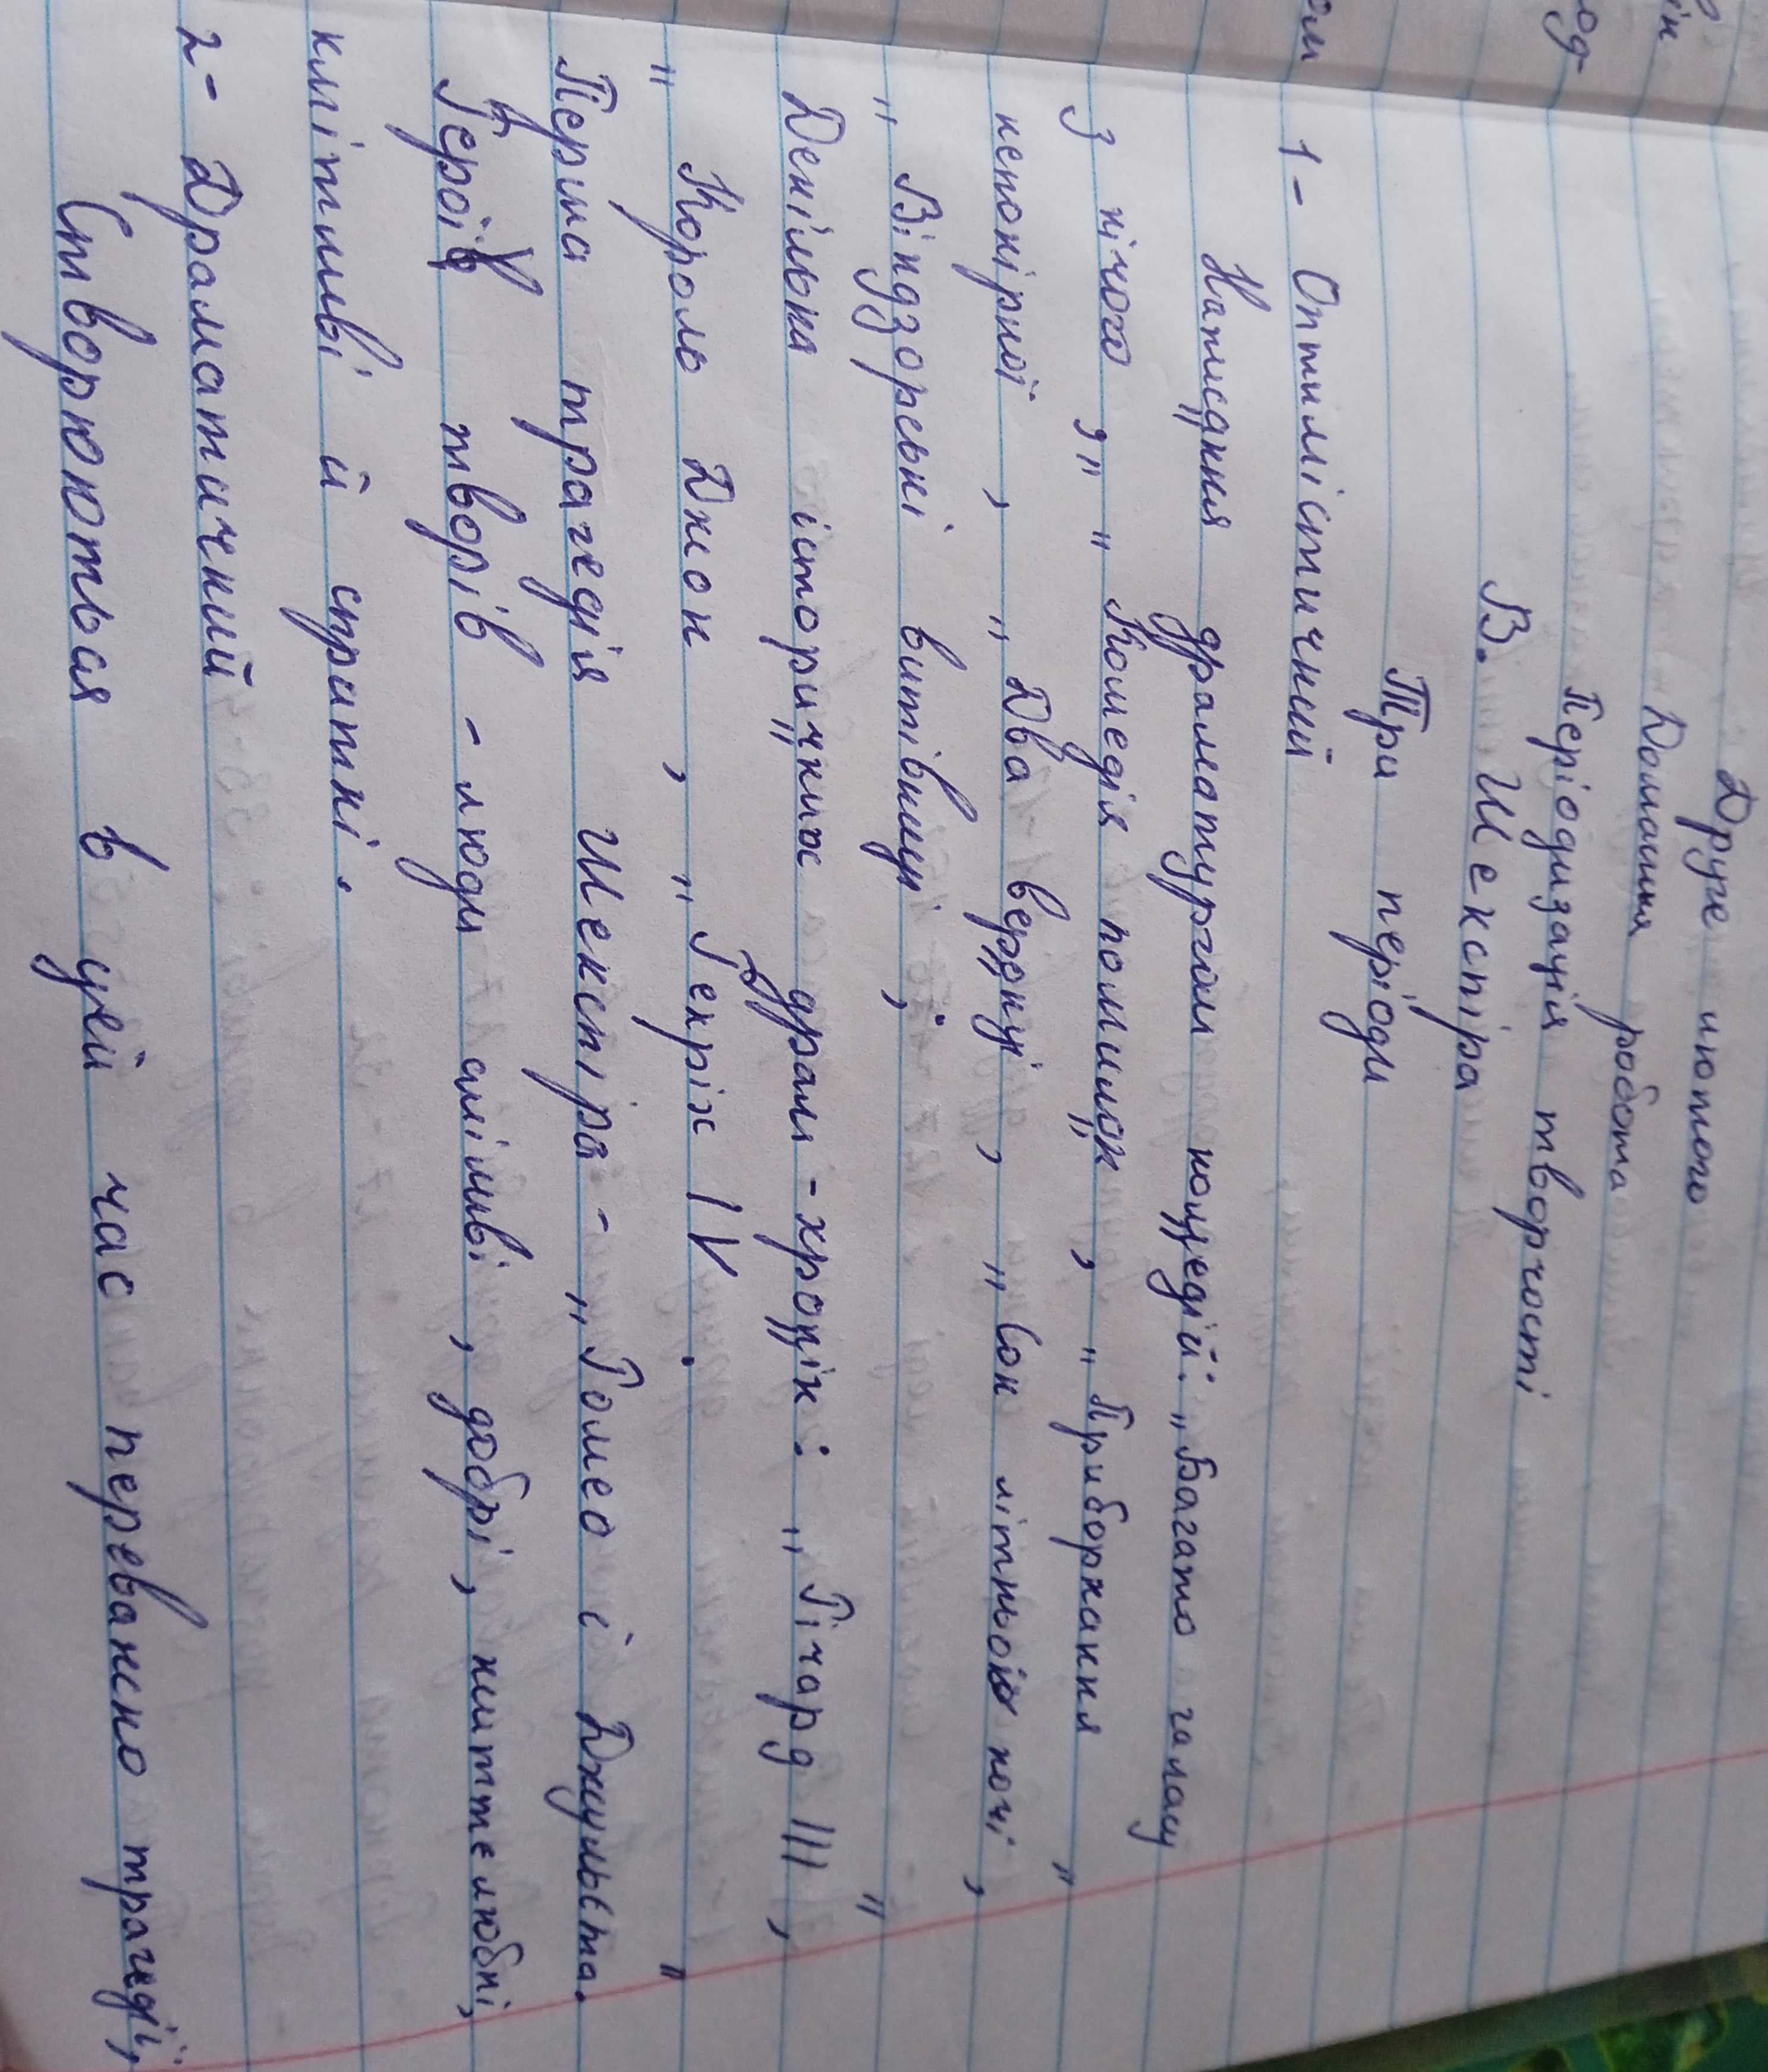 Друге лютого
Домашня робота
Періодизація творчості
В. Шекспіра
Три періоди
1- Оптимістичний
Написання драматургом комедій: „Багато галасу
з нічого", „Комедія помилок", „Приборкання
непокірної", „Два веронці", „Сон літньої ночі",
„Віндзорські витівниці";
Декілька історичних драм-хронік: „Річард III",
„Король Джон", „Генріх IV".
Перша трагедія Шекспіра - „Ромео і Джульєта."
Герої творів - люди сміливі, добрі, життелюбні,
кмітливі й спритні.
2- Драматичний
Створюються в цей час переважно трагедії,